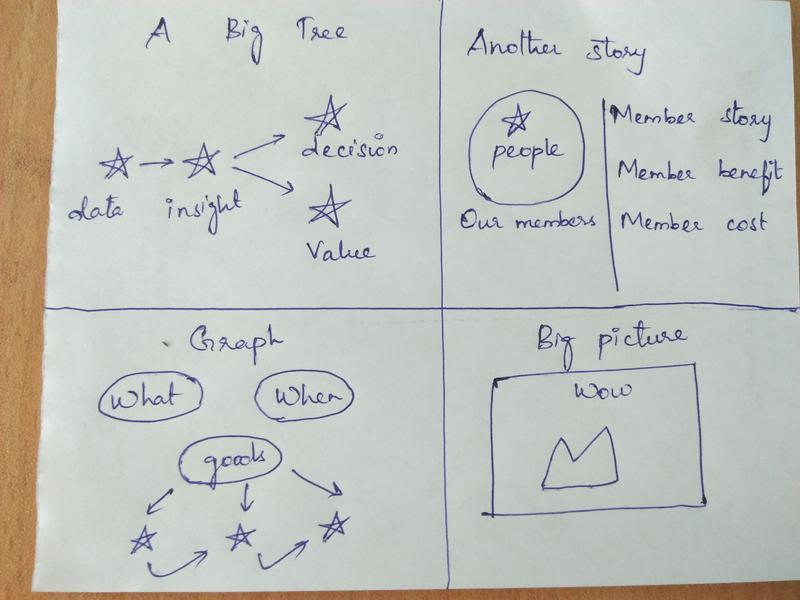 A Big Tree
decision
data insight
Value
Another story
people
Our members
Member story
Member benefit
Member cost
Graph
What When
goods
Big picture
Wow